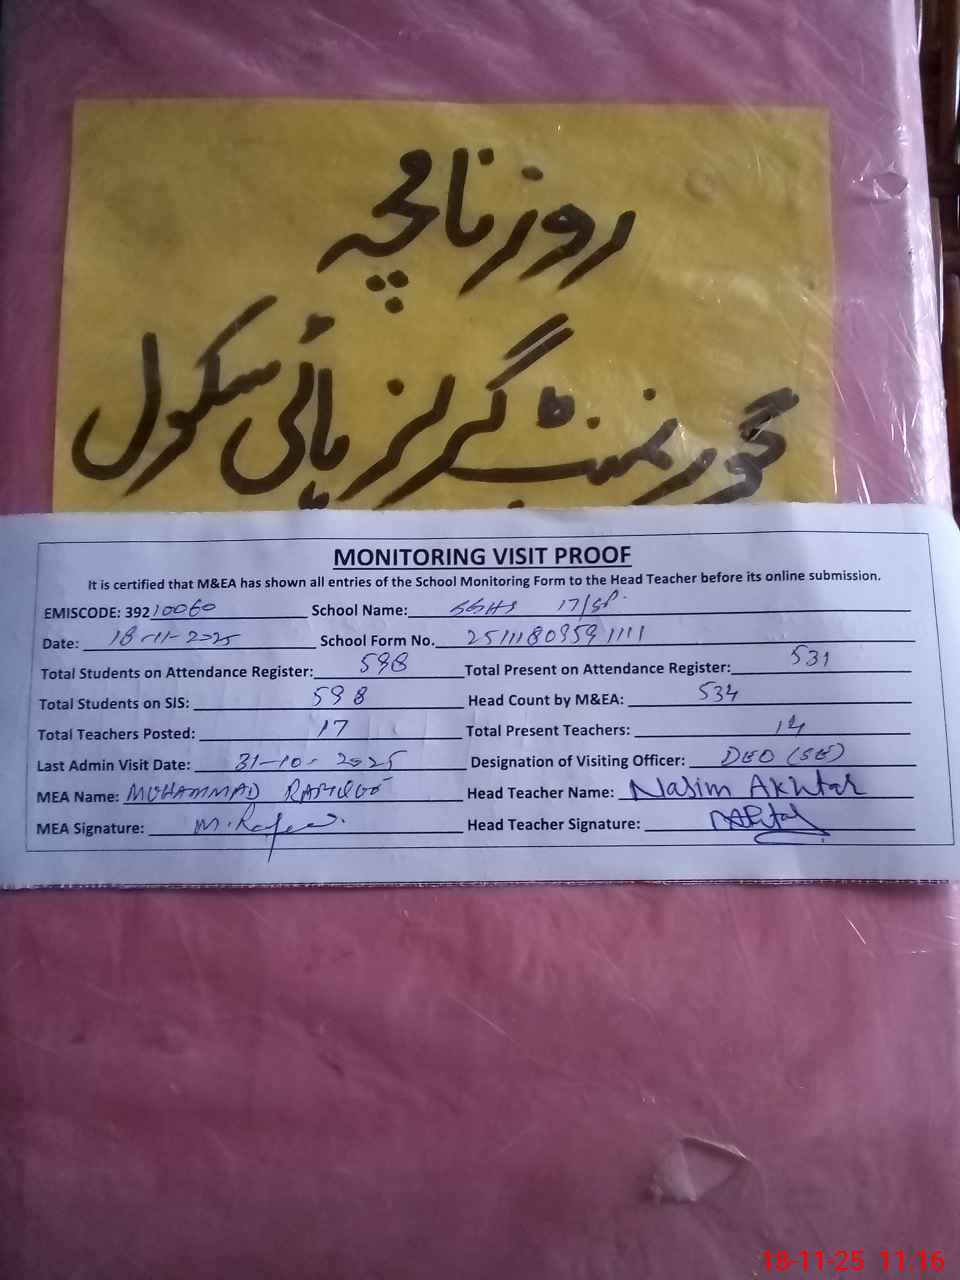 روزنامچہ
گورنمنٹ گرلز ہائی سکول
MONITORING VISIT PROOF
It is certified that M&EA has shown all entries of the School Monitoring Form to the Head Teacher before its online submission.
EMISCODE: 39210060 School Name: GGHS 17/SP.
Date: 18-11-2025 School Form No. 25111809591111
Total Students on Attendance Register: 598 Total Present on Attendance Register: 531
Total Students on SIS: 598 Head Count by M&EA: 534
Total Teachers Posted: 17 Total Present Teachers: 14
Last Admin Visit Date: 31-10-2025 Designation of Visiting Officer: DEO (SE)
MEA Name: MUHAMMAD Head Teacher Name: Nasim Akhtar
MEA Signature: Head Teacher Signature:
18-11-25 11:16